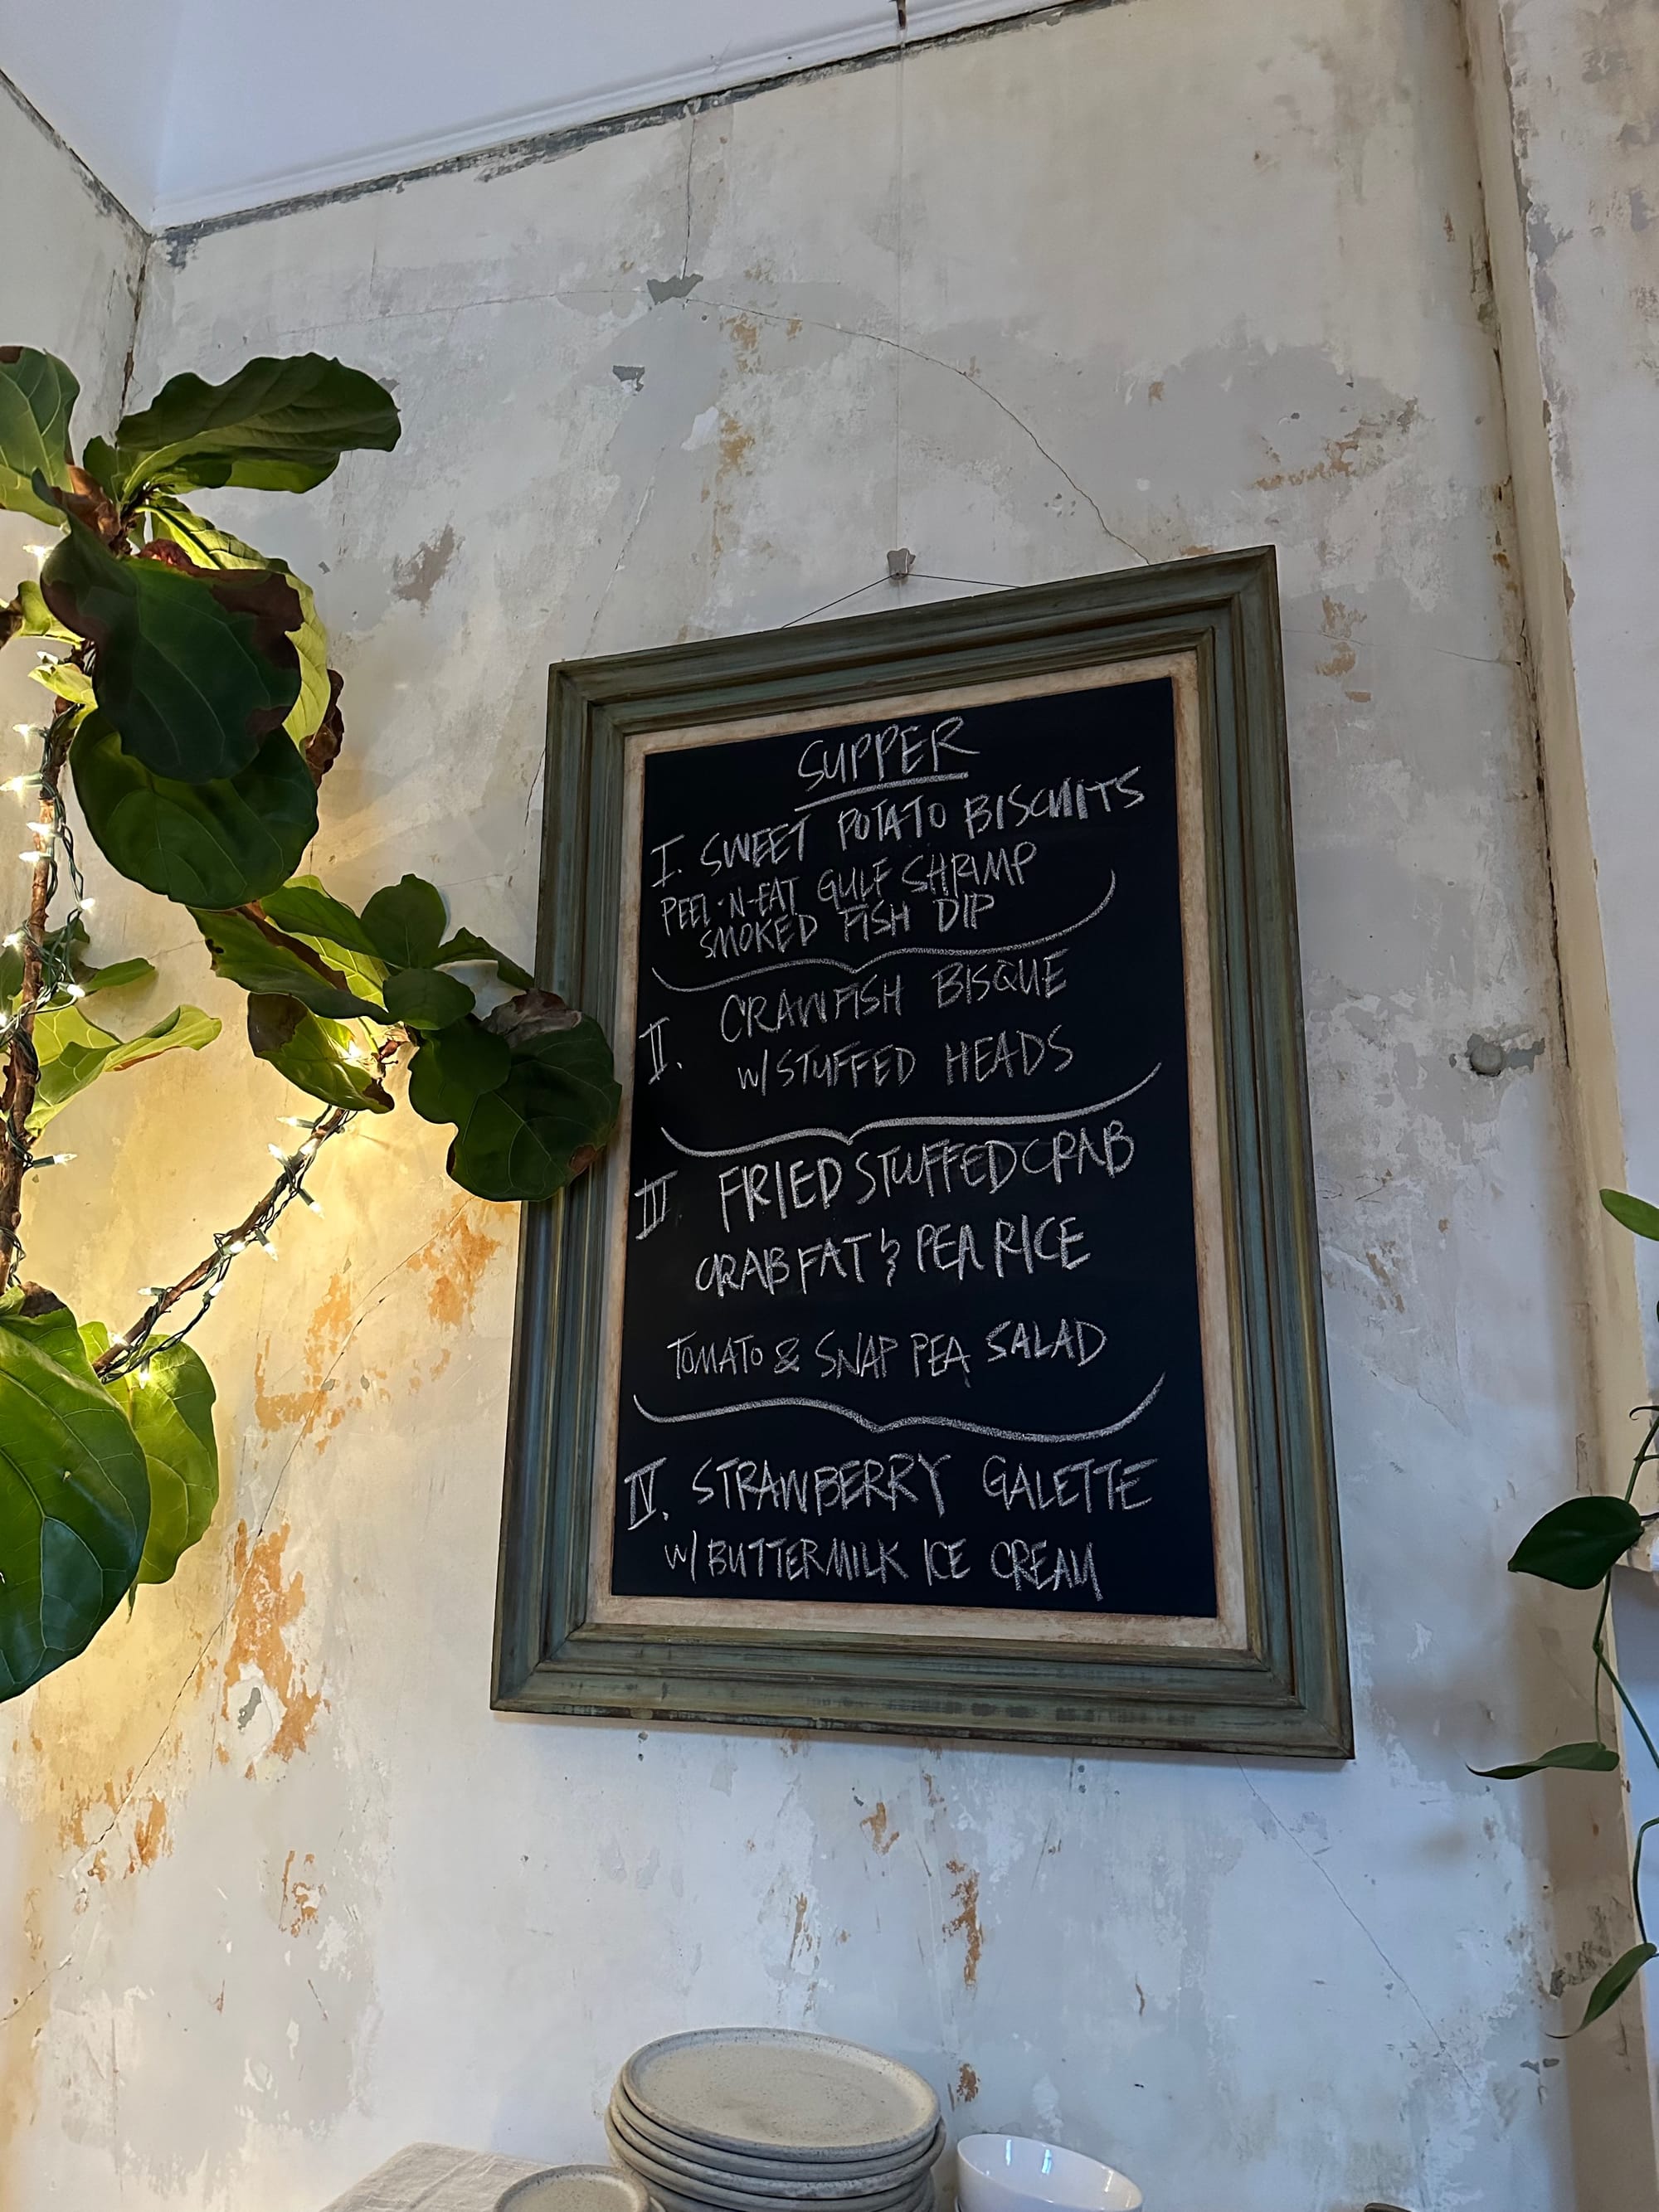 SUPPER
I. SWEET POTATO BISCUITS
PEEL-N-EAT GULF SHRIMP
SMOKED FISH DIP
II. CRAWFISH BISQUE
W/STUFFED HEADS
III FRIED STUFFED CRAB
CRAB FAT & PEA RICE
TOMATO & SNAP PEA SALAD
IV. STRAWBERRY GALETTE
W/BUTTERMILK ICE CREAM